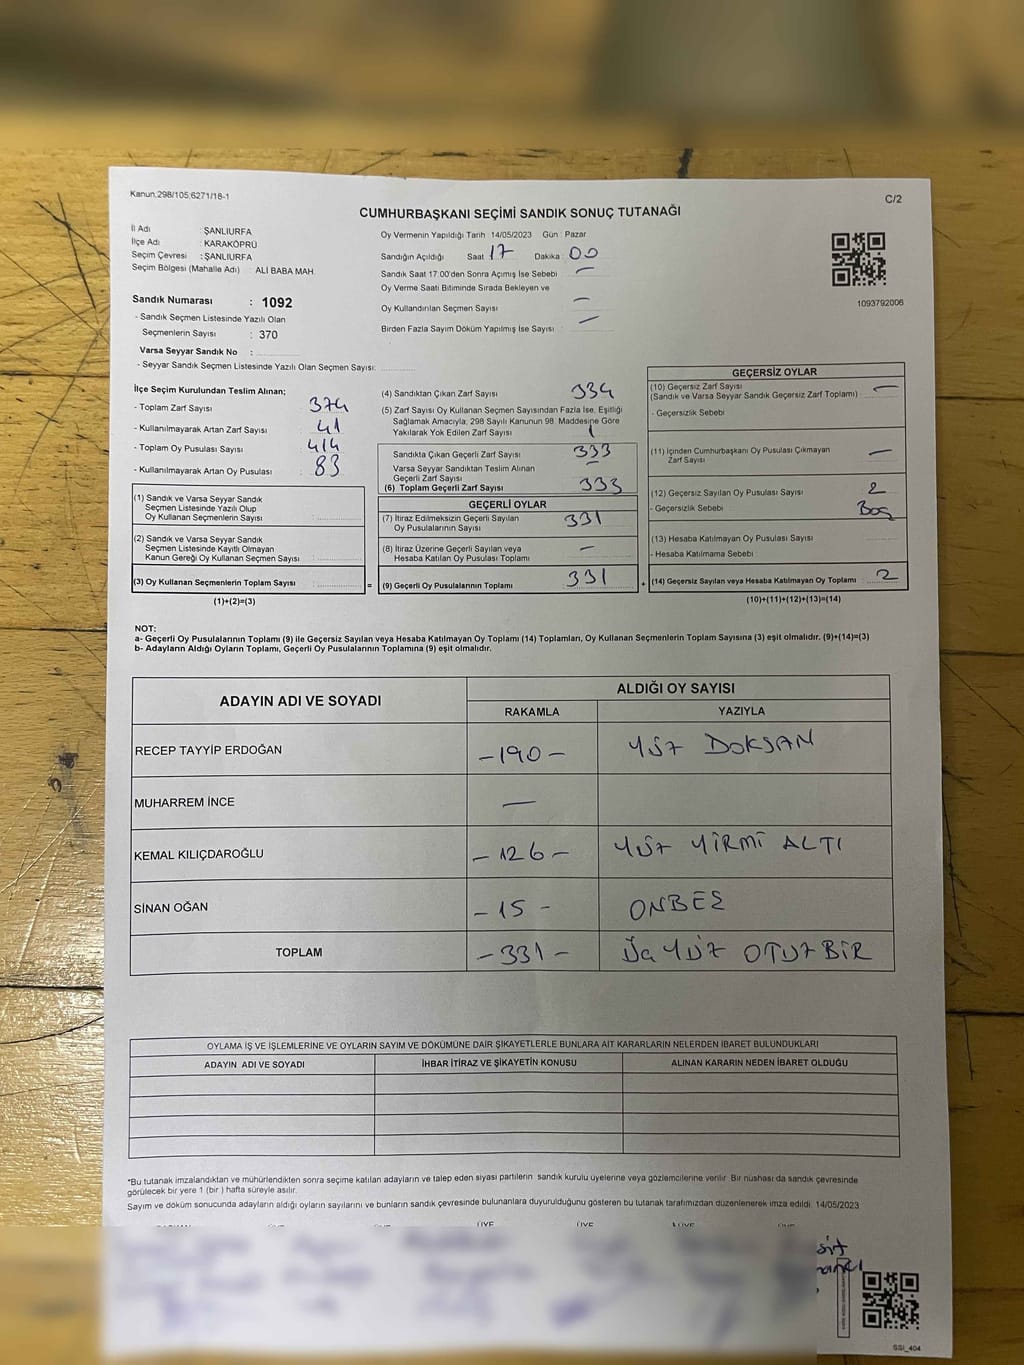 Kanun.298/105;6271/18-1
C/2
CUMHURBAŞKANI SEÇİMİ SANDIK SONUÇ TUTANAĞI
İl Adı : ŞANLIURFA
İlçe Adı : KARAKÖPRÜ
Seçim Çevresi : ŞANLIURFA
Seçim Bölgesi (Mahalle Adı) : ALİ BABA MAH.
Oy Vermenin Yapıldığı Tarih : 14/05/2023 Gün : Pazar
Sandığın Açıldığı Saat 17 Dakika : 00
Sandık Saat 17.00'den Sonra Açımış İse Sebebi —
Oy Verme Saati Bitiminde Sırada Bekleyen ve
Oy Kullandırılan Seçmen Sayısı —
Birden Fazla Sayım Döküm Yapılmış İse Sayısı —
1093792006
Sandık Numarası : 1092
- Sandık Seçmen Listesinde Yazılı Olan
Seçmenlerin Sayısı : 370
Varsa Seyyar Sandık No :
- Seyyar Sandık Seçmen Listesinde Yazılı Olan Seçmen Sayısı:
İlçe Seçim Kurulundan Teslim Alınan;
- Toplam Zarf Sayısı : 374
- Kullanılmayarak Artan Zarf Sayısı : 41
- Toplam Oy Pusulası Sayısı : 414
- Kullanılmayarak Artan Oy Pusulası : 83
(1) Sandık ve Varsa Seyyar Sandık
Seçmen Listesinde Yazılı Olup
Oy Kullanan Seçmenlerin Sayısı :
(2) Sandık ve Varsa Seyyar Sandık
Seçmen Listesinde Kayıtlı Olmayan
Kanun Gereği Oy Kullanan Seçmen Sayısı :
(3) Oy Kullanan Seçmenlerin Toplam Sayısı : =
(1)+(2)=(3)
(4) Sandıktan Çıkan Zarf Sayısı 334
(5) Zarf Sayısı Oy Kullanan Seçmen Sayısından Fazla İse, Eşitliği
Sağlamak Amacıyla; 298 Sayılı Kanunun 98. Maddesine Göre
Yakılarak Yok Edilen Zarf Sayısı 1
Sandıkta Çıkan Geçerli Zarf Sayısı 333
Varsa Seyyar Sandıktan Teslim Alınan
Geçerli Zarf Sayısı —
(6) Toplam Geçerli Zarf Sayısı 333
GEÇERLİ OYLAR
(7) İtiraz Edilmeksizin Geçerli Sayılan
Oy Pusulalarının Sayısı 331
(8) İtiraz Üzerine Geçerli Sayılan veya
Hesaba Katılan Oy Pusulası Toplamı —
(9) Geçerli Oy Pusulalarının Toplamı 331 +
GEÇERSİZ OYLAR
(10) Geçersiz Zarf Sayısı
(Sandık ve Varsa Seyyar Sandık Geçersiz Zarf Toplamı) : —
- Geçersizlik Sebebi
(11) İçinden Cumhurbaşkanı Oy Pusulası Çıkmayan
Zarf Sayısı —
(12) Geçersiz Sayılan Oy Pusulası Sayısı 2
- Geçersizlik Sebebi Boş
(13) Hesaba Katılmayan Oy Pusulası Sayısı
- Hesaba Katılmama Sebebi
(14) Geçersiz Sayılan veya Hesaba Katılmayan Oy Toplamı 2
(10)+(11)+(12)+(13)=(14)
NOT:
a- Geçerli Oy Pusulalarının Toplamı (9) ile Geçersiz Sayılan veya Hesaba Katılmayan Oy Toplamı (14) Toplamları, Oy Kullanan Seçmenlerin Toplam Sayısına (3) eşit olmalıdır. (9)+(14)=(3)
b- Adayların Aldığı Oyların Toplamı, Geçerli Oy Pusulalarının Toplamına (9) eşit olmalıdır.
ADAYIN ADI VE SOYADI
ALDIĞI OY SAYISI
RAKAMLA YAZIYLA
RECEP TAYYİP ERDOĞAN -190- YÜZ DOKSAN
MUHARREM İNCE —
KEMAL KILIÇDAROĞLU -126- YÜZ YİRMİ ALTI
SİNAN OĞAN -15- ONBEŞ
TOPLAM -331- ÜÇ YÜZ OTUZ BİR
OYLAMA İŞ VE İŞLEMLERİNE VE OYLARIN SAYIM VE DÖKÜMÜNE DAİR ŞİKAYETLERLE BUNLARA AİT KARARLARIN NELERDEN İBARET BULUNDUKLARI
ADAYIN ADI VE SOYADI İHBAR İTİRAZ VE ŞİKAYETİN KONUSU ALINAN KARARIN NEDEN İBARET OLDUĞU
*Bu tutanak imzalandıktan ve mühürlendikten sonra seçime katılan adayların ve talep eden siyasi partilerin sandık kurulu üyelerine veya gözlemcilerine verilir. Bir nüshası da sandık çevresinde
görülecek bir yere 1 (bir) hafta süreyle asılır.
Sayım ve döküm sonucunda adayların aldığı oyların sayılarını ve bunların sandık çevresinde bulunanlara duyurulduğunu gösteren bu tutanak tarafımızdan düzenlenerek imza edildi. 14/05/2023
ÜYE ÜYE ÜYE
SSI_404